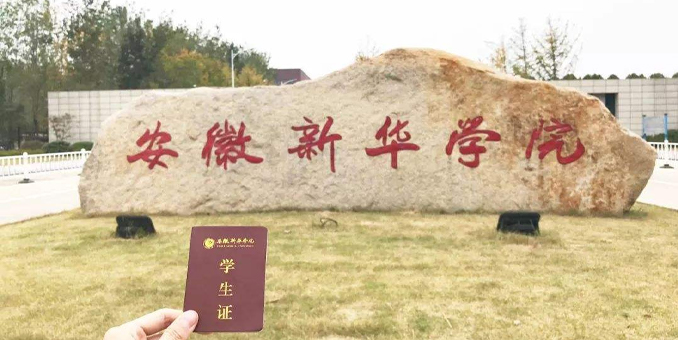 安徽新华学院
安徽新华学院
学生证